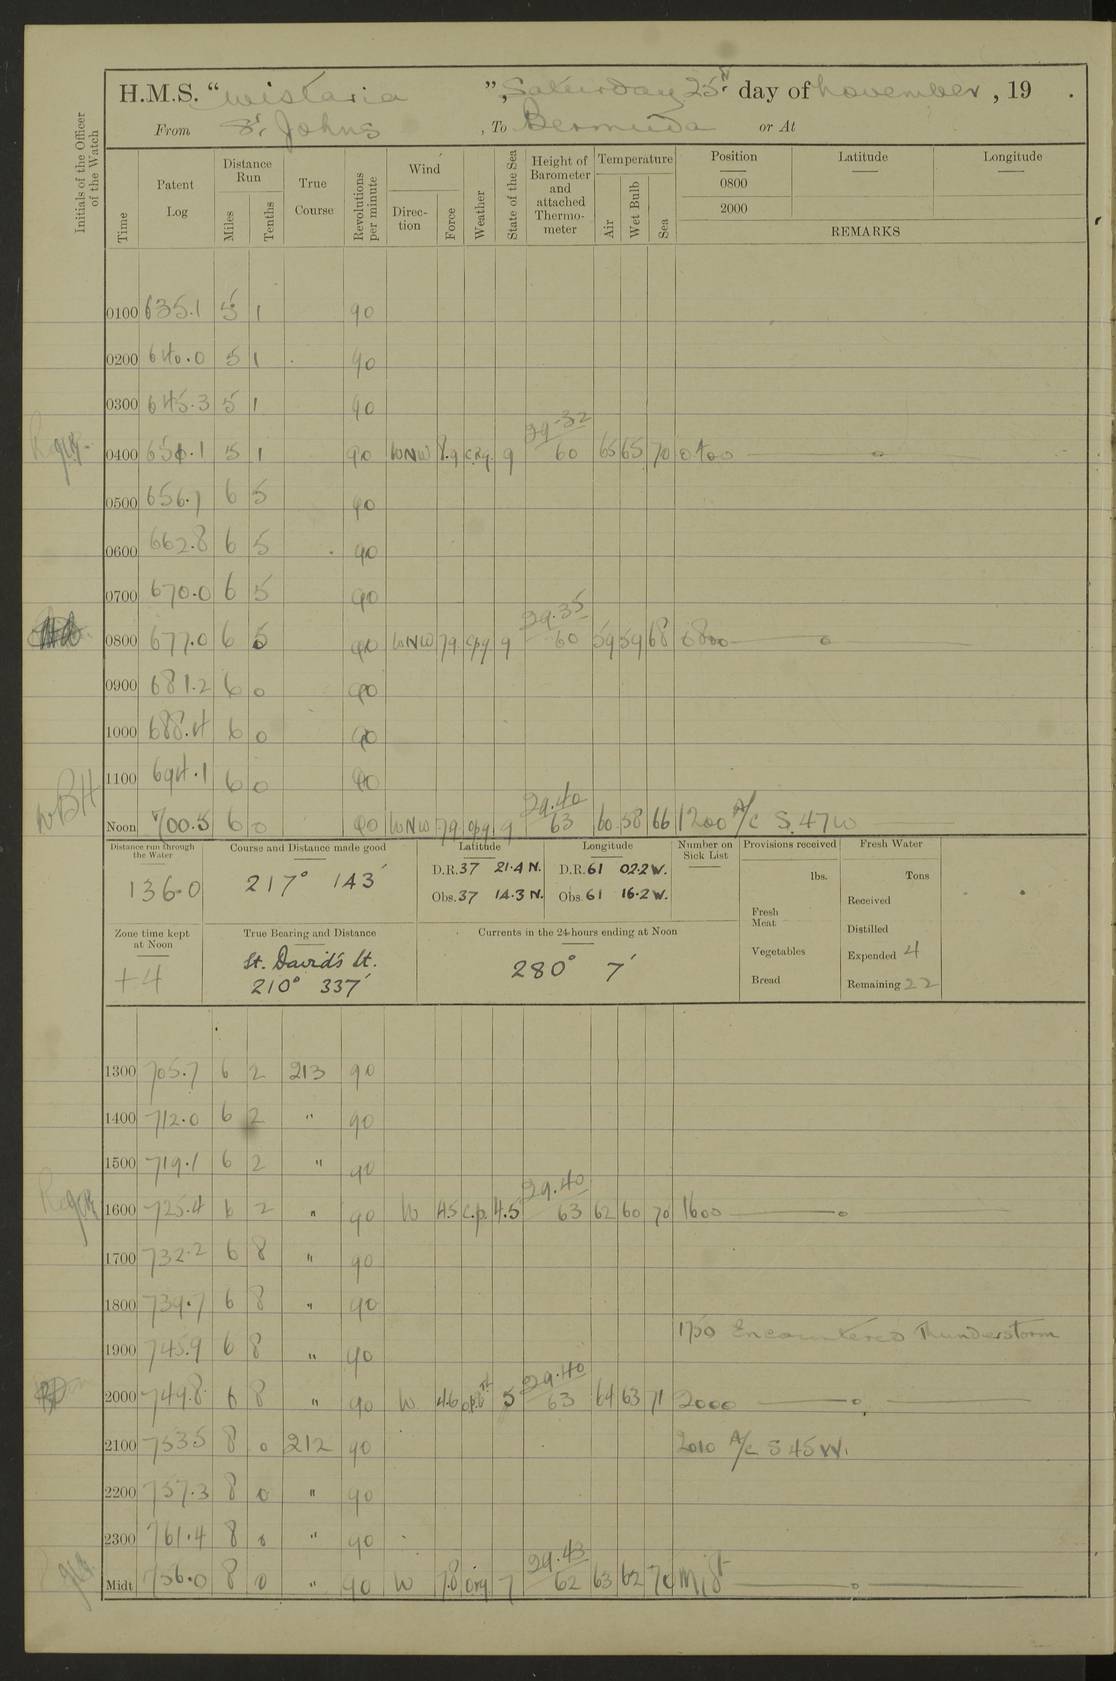 H.M.S. “Wistaria”, Saturday 25th day of November, 19 .
From St. Johns , To Bermuda or At
Initials of the Officer of the Watch
Time Patent Log Distance Run Miles Tenths True Course Revolutions per minute Wind Direc-tion Force Weather State of the Sea Height of Barometer and attached Thermo-meter Temperature Air Wet Bulb Sea Position 0800 2000 Latitude Longitude REMARKS
0100 635.1 5 1 90
0200 640.0 5 1 90
0300 645.3 5 1 90
29.32
0400 5 1 90 WNW 8.9 9 60 65 65 70 0400
0500 656.7 6 5 90
0600 662.8 6 5 90
0700 670.0 6 5 90
29.35
0800 677.0 6 5 90 WNW 79 cpq 9 60 59 59 68 0800
0900 681.2 6 0 90
1000 688.4 6 0 90
1100 694.1 6 0 90
WBH
29.40
Noon 700.5 6 0 90 WNW 79 cpq 9 63 60 58 66 1200 A/C S.47W
Distance run through the Water
136.0
Course and Distance made good
217° 143'
Latitude
D.R. 37 21.4 N.
Obs. 37 14.3 N.
Longitude
D.R. 61 02.2 W.
Obs. 61 16.2 W.
Number on Sick List
Provisions received
lbs.
Fresh Meat
Vegetables
Bread
Fresh Water
Tons
Received
Distilled
Expended 4
Remaining 22
Zone time kept at Noon
+4
True Bearing and Distance
St. David's Lt.
210° 337'
Currents in the 24 hours ending at Noon
280° 7'
1300 705.7 6 2 213 90
1400 712.0 6 2 " 90
1500 719.1 6 2 " 90
29.40
1600 725.4 6 2 " 90 W 45 c.p. 4.5 63 62 60 70 1600
1700 732.2 6 8 " 90
1800 739.7 6 8 " 90
1750 Encountered Thunderstorm
1900 745.9 6 8 " 90
29.40
2000 749.8 6 8 " 90 W 46 5 63 64 63 71 2000
2100 753.5 8 0 212 90 2010 A/C S 45 W.
2200 757.3 8 0 " 90
2300 761.4 8 0 " 90
29.43
Midt. 756.0 8 0 " 90 W 7.8 7 62 63 62 70